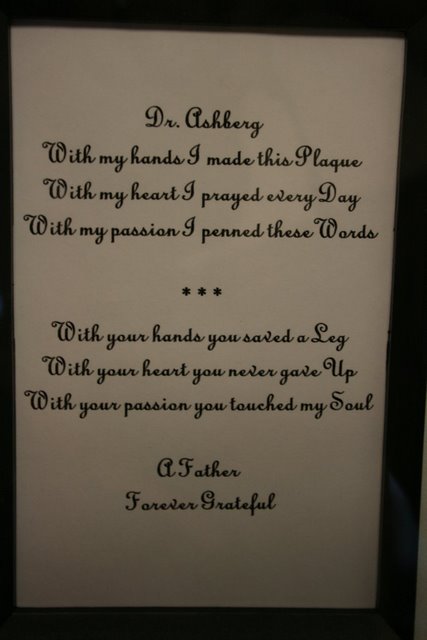 Dr. Ashberg
With my hands I made this Plaque
With my heart I prayed every Day
With my passion I penned these Words
***
With your hands you saved a Leg
With your heart you never gave Up
With your passion you touched my Soul
A Father
Forever Grateful